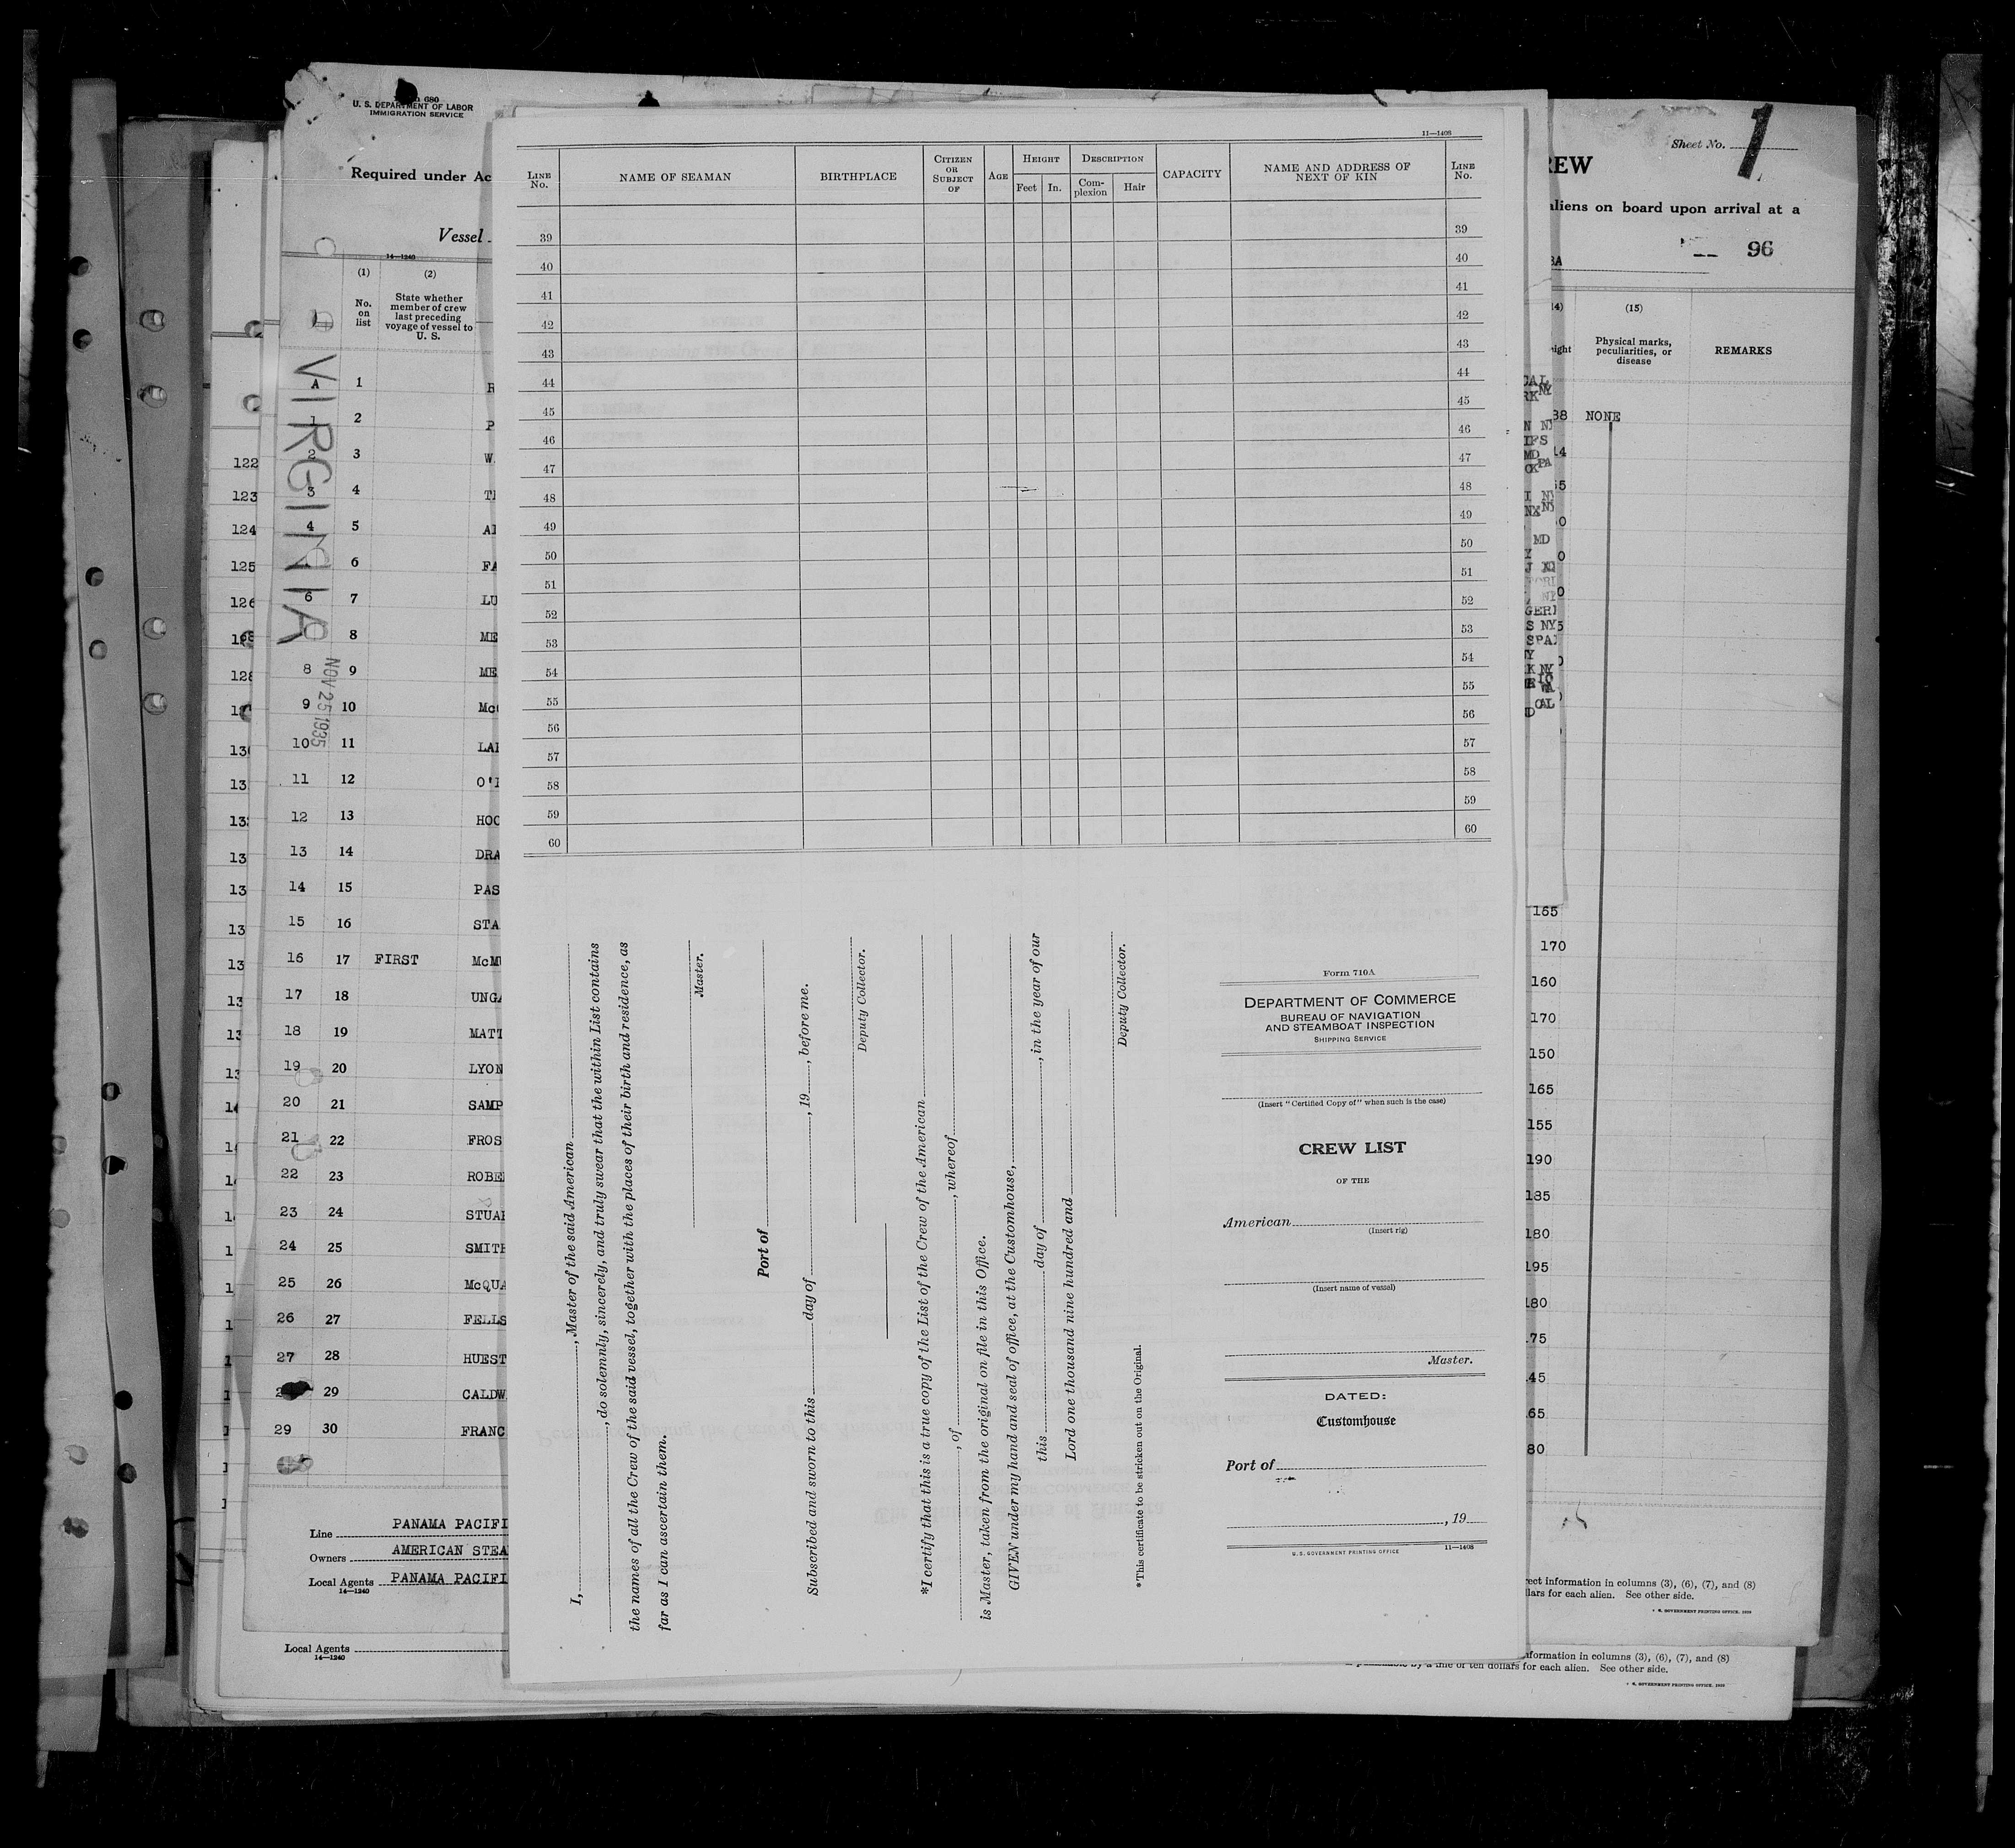 680
U. S. DEPARTMENT OF LABOR
IMMIGRATION SERVICE
Required under Ac
Vessel
14—1240
(1)
(2)
No.
on
list
State whether
member of crew
last preceding
voyage of vessel to
U. S.
VIRGINIA
NOV 25 1935
A 1
1 2 P
2 3 W
3 4
4 5
6 FA
6 7 LU
8 ME
8 9 ME
9 10 Mc
10 11 LA
11 12 O'
12 13 HOO
13 14 DRA
14 15 PAS
15 16 STA
16 17 FIRST McM
17 18 UNG
18 19 MATT
19 20 LYON
20 21 SAMP
21 22 FROS
22 23 ROBE
23 24 STUA
24 25 SMITH
25 26 McQUA
26 27 FELLS
27 28 HUEST
29 CALDW
29 30 FRANC
Line PANAMA PACIFI
Owners AMERICAN STEA
Local Agents PANAMA PACIFI
14—1240
Local Agents
14—1240
122
123
124
125
11—1408
LINE No.
NAME OF SEAMAN
BIRTHPLACE
CITIZEN OR SUBJECT OF
AGE
HEIGHT
Feet In.
DESCRIPTION
Complexion Hair
CAPACITY
NAME AND ADDRESS OF NEXT OF KIN
LINE No.
39 39
40 40
41 41
42 42
43 43
44 44
45 45
46 46
47 47
48 48
49 49
50 50
51 51
52 52
53 53
54 54
55 55
56 56
57 57
58 58
59 59
60 60
I, , Master of the said American
, do solemnly, sincerely, and truly swear that the within List contains
the names of all the Crew of the said vessel, together with the places of their birth and residence, as
far as I can ascertain them.
Master.
Port of
Subscribed and sworn to this day of , 19 , before me.
Deputy Collector.
*I certify that this is a true copy of the List of the Crew of the American
, of , whereof
is Master, taken from the original on file in this Office.
GIVEN under my hand and seal of office, at the Customhouse,
this day of , in the year of our
Lord one thousand nine hundred and
Deputy Collector.
*This certificate to be stricken out on the Original.
Form 710A
DEPARTMENT OF COMMERCE
BUREAU OF NAVIGATION
AND STEAMBOAT INSPECTION
SHIPPING SERVICE
(Insert "Certified Copy of" when such is the case)
CREW LIST
OF THE
American
(Insert rig)
(Insert name of vessel)
Master.
DATED:
Customhouse
Port of
, 19
U.S. GOVERNMENT PRINTING OFFICE 11—1408
Sheet No. 1
REW
aliens on board upon arrival at a
96
(15)
Physical marks,
peculiarities, or
disease
REMARKS
NONE
165
170
160
170
150
165
155
190
185
180
195
180
rect information in columns (3), (6), (7), and (8)
llars for each alien. See other side.
nformation in columns (3), (6), (7), and (8)
of ten dollars for each alien. See other side.